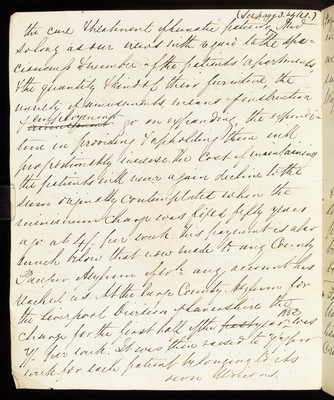 (See page 3. of let.)
the care & treatment of lunatic patients, And
so long as our views with regard to the spa-
ciousness & number of the patients' apartments
& the quantity & kind of their furniture, the
variety of amusements, means of instruction
& employment go on expanding, the expendi-
ture in providing & upholding them will
proportionably increase. The cost of maintaining
the patients will never again decline to the
sum originally contemplated when the
minimum charge was fixed fifty years
ago at 4/- per week. This payment is also
much below that now made to any County
Pauper Asylum of wh. any account has
reached us. At the large County Asylum for
the Liverpool Division of Lancashire the
charge for the first half of the year 1852 was
7/- per week. It was then raised to per
week for each patient belonging to its
own Unions.